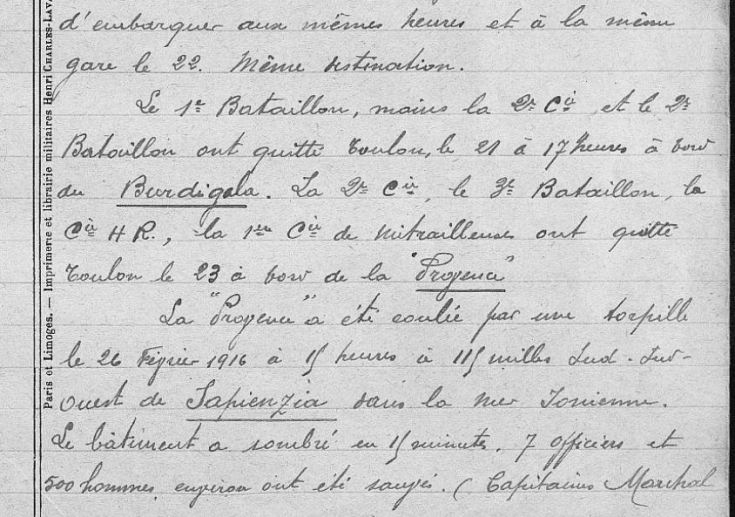 d'embarquer aux mêmes heures et à la même
gare le 22. Même destination.
Le 1er Bataillon, moins la 2e Cie et le 2e
Bataillon ont quitté Toulon, le 21 à 17 heures à bord
du Burdigala. La 2e Cie, le 3e Bataillon, la
Cie H R., la 1ère Cie de Mitrailleuses ont quitté
Toulon le 23 à bord de la "Provence"
La "Provence" a été coulée par une torpille
le 26 Février 1916 à 15 heures à 115 milles Sud-Sud-
Ouest de Sapienzia dans la mer Ionienne.
Le bâtiment a sombré en 15 minutes. 7 officiers et
500 hommes environ ont été sauvés. (Capitaines Marchal
Paris et Limoges. — Imprimerie et librairie militaires Henri CHARLES-LAV